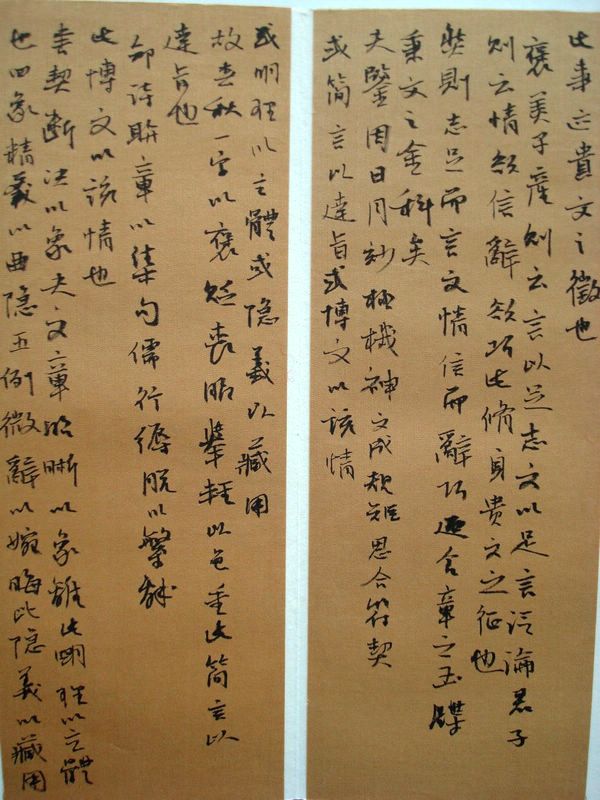 此事迹貴文之徵也
褒美子産則云言以足志文以足言泛論君子
則云情欲信辭欲巧此脩身貴文之征也
然則志足而言文情信而辭巧迺含章之玉牒
秉文之金科矣
夫鑒周日月妙極機神文成規矩思合符契
或简言以達旨或博文以該情
或明理以立體或隐義以藏用
故春秋一字以褒貶喪服舉輕以包重此简言以
達旨也
邠詩聯章以集句儒行縟說以繁辭
此博文以該情也
書契断決以象夬文章昭晰以象離此明理以立體
也四象精義以曲隐五例微辭以婉晦此隐義以藏用